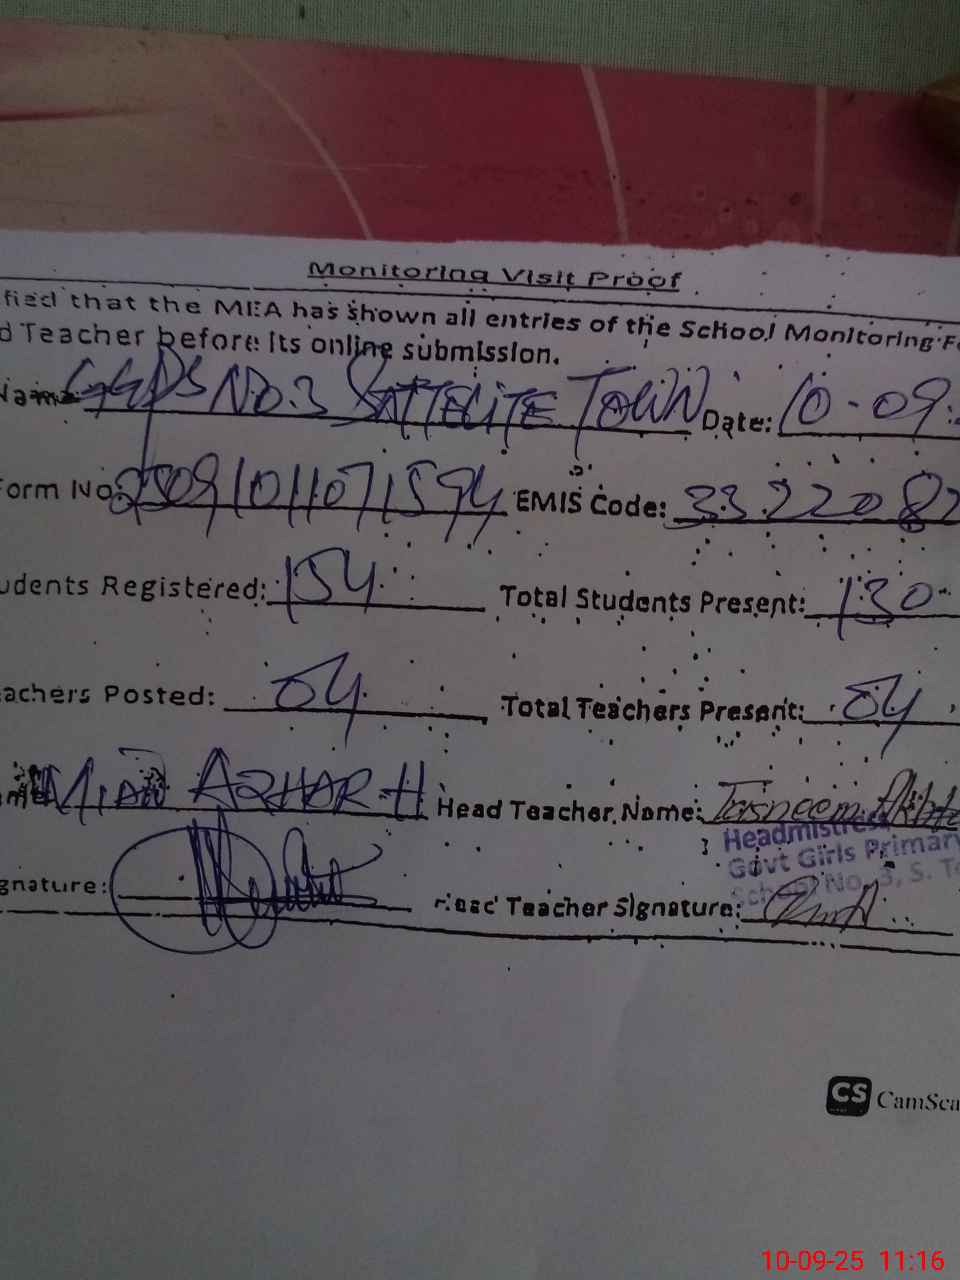 Monitoring Visit Proof
fied that the MEA has shown all entries of the School Monitoring F
d Teacher before its online submission.
Name GGPS No.3 SATTELITE TOWN Date: 10-09
Form No. 25091011071594 EMIS Code: 3322082
udents Registered: 154 Total Students Present: 130
achers Posted: 04 Total Teachers Present: 04
me MIAN AZHAR H Head Teacher Name: Tasneem Akht
Headmistress
Govt Girls Primary
School No. 3, S. T
gnature: Head Teacher Signature:
CS CamSca
10-09-25 11:16